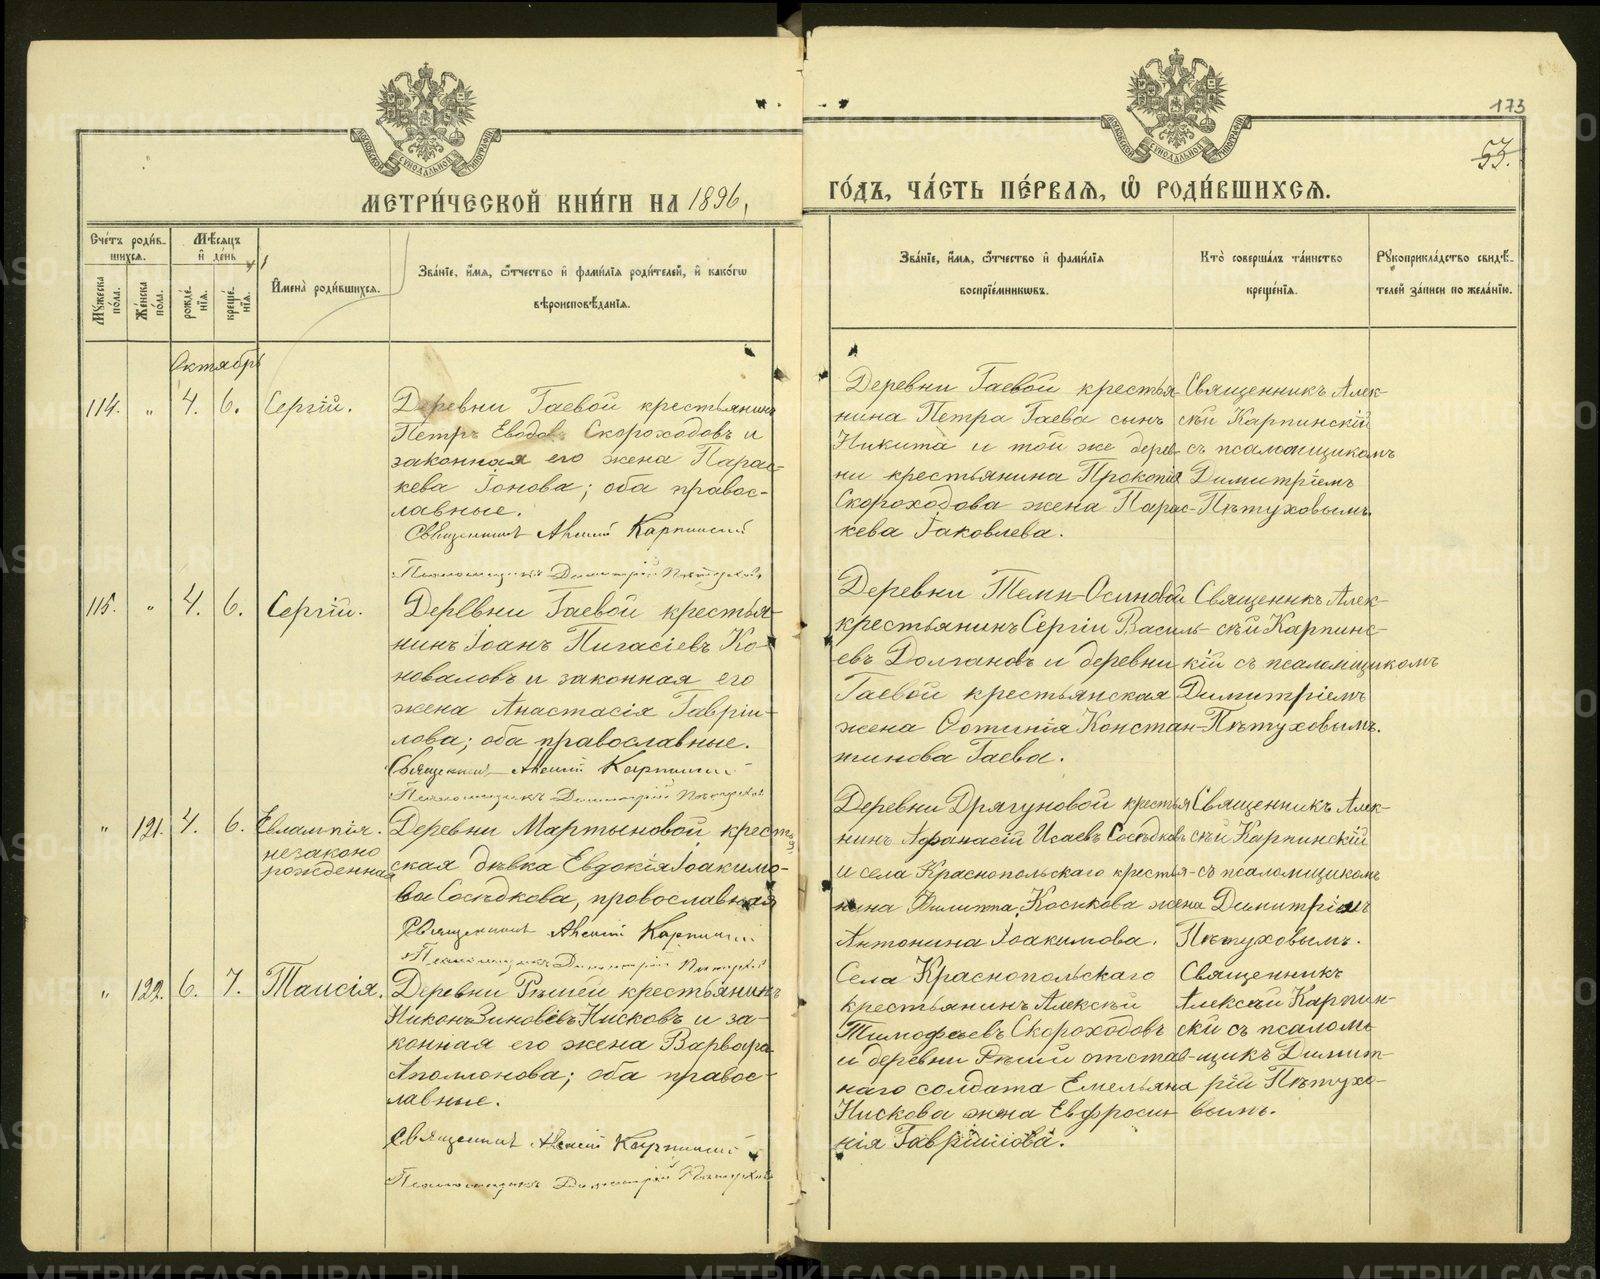 173
53.
МЕТРИ́ЧЕСКОЙ КНИ́ГИ НА 1896,
ГО́ДЪ, ЧА́СТЬ ПЕ́РВАѦ, Ѽ РОДИ́ВШИХСѦ.
Сче́тъ роди́в-
шихсѧ.
Мѣ́сѧцъ
и҆ де́нь
Мꙋ́жеска
по́ла.
Же́нска
по́ла.
рожде́-
нїѧ.
креще́-
нїѧ.
И҆мена̀ роди́вшихсѧ.
Зва́нїе, и҆́мѧ, ѻ҆́тчество и҆ фами́лїѧ роди́телей, и҆ како́гѡ
вѣроисповѣ́данїѧ.
Зва́нїе, и҆́мѧ, ѻ҆́тчество и҆ фами́лїѧ
воспрїе́мникѡвъ.
Кто̀ соверша́лъ та́инство
креще́нїѧ.
Рꙋкоприкла́дство свидѣ́-
телей за́писи по жела́нїю.
Октябрь
114. " 4. 6. Сергій.
Деревни Гаевой крестьянинъ
Петръ Еводовъ Скороходовъ и
законная его жена Парас-
кева Іонова; оба правос-
лавные.
Священникъ Алексій Карпинскій
Псаломщикъ Димитрій Пѣтуховъ
Деревни Гаевой крестья-
нина Петра Гаева сынъ
Никита и той же дерев-
ни крестьянина Прокопія
Скороходова жена Парас-
кева Іаковлева.
Священникъ Алек-
сѣй Карпинскій
съ псаломщикомъ
Димитріемъ
Пѣтуховымъ.
115. " 4. 6. Сергій.
Деревни Гаевой крестья-
нинъ Іоанъ Пигасіевъ Ко-
новаловъ и законная его
жена Анастасія Гавріи-
лова; оба православные.
Священникъ Алексій Карпинскій
Псаломщикъ Димитрій Пѣтуховъ
Деревни Темн-Осиновой
крестьянинъ Сергій Василь-
евъ Долгановъ и деревни
Гаевой крестьянская
жена Фотинія Констан-
тинова Гаева.
Священникъ Алек-
сѣй Карпинс-
кій съ псаломщикомъ
Димитріемъ
Пѣтуховымъ.
" 121. 4. 6. Евлампія.
незаконо
рожденная
Деревни Мартыновой крестьян-
ская дѣвка Евдокія Іоакимо-
ва Сосѣдкова, провославная
Священникъ Алексій Карпинскій
Псаломщикъ Димитрій Пѣтуховъ
Деревни Дрягуновой крестья-
нинъ Афанасій Исаевъ Сосѣдковъ
и села Краснопольскаго крестья-
нина Филиппа Косикова жена
Антонина Іоакимова.
Священникъ Алек-
сѣй Карпинскій
съ псаломщикомъ
Димитріемъ
Пѣтуховымъ.
" 122. 6. 7. Таисія.
Деревни Рѣшей крестьянинъ
Никонъ Зиновіевъ Нисковъ и за-
конная его жена Варвара
Аполлонова; оба правос-
лавные.
Священникъ Алексій Карпинскій
Псаломщикъ Димитрій Пѣтуховъ
Села Краснопольскаго
крестьянинъ Алексѣй
Тимофеевъ Скороходовъ
и деревни Рѣшей отстав-
наго солдата Емельяна
Нискова жена Евфроси-
нія Гавріилова.
Священникъ
Алексѣй Карпин-
скій съ псалом-
щикъ Димит-
рій Пѣтухо-
вымъ.
METRIKI.GASO-URAL.RU